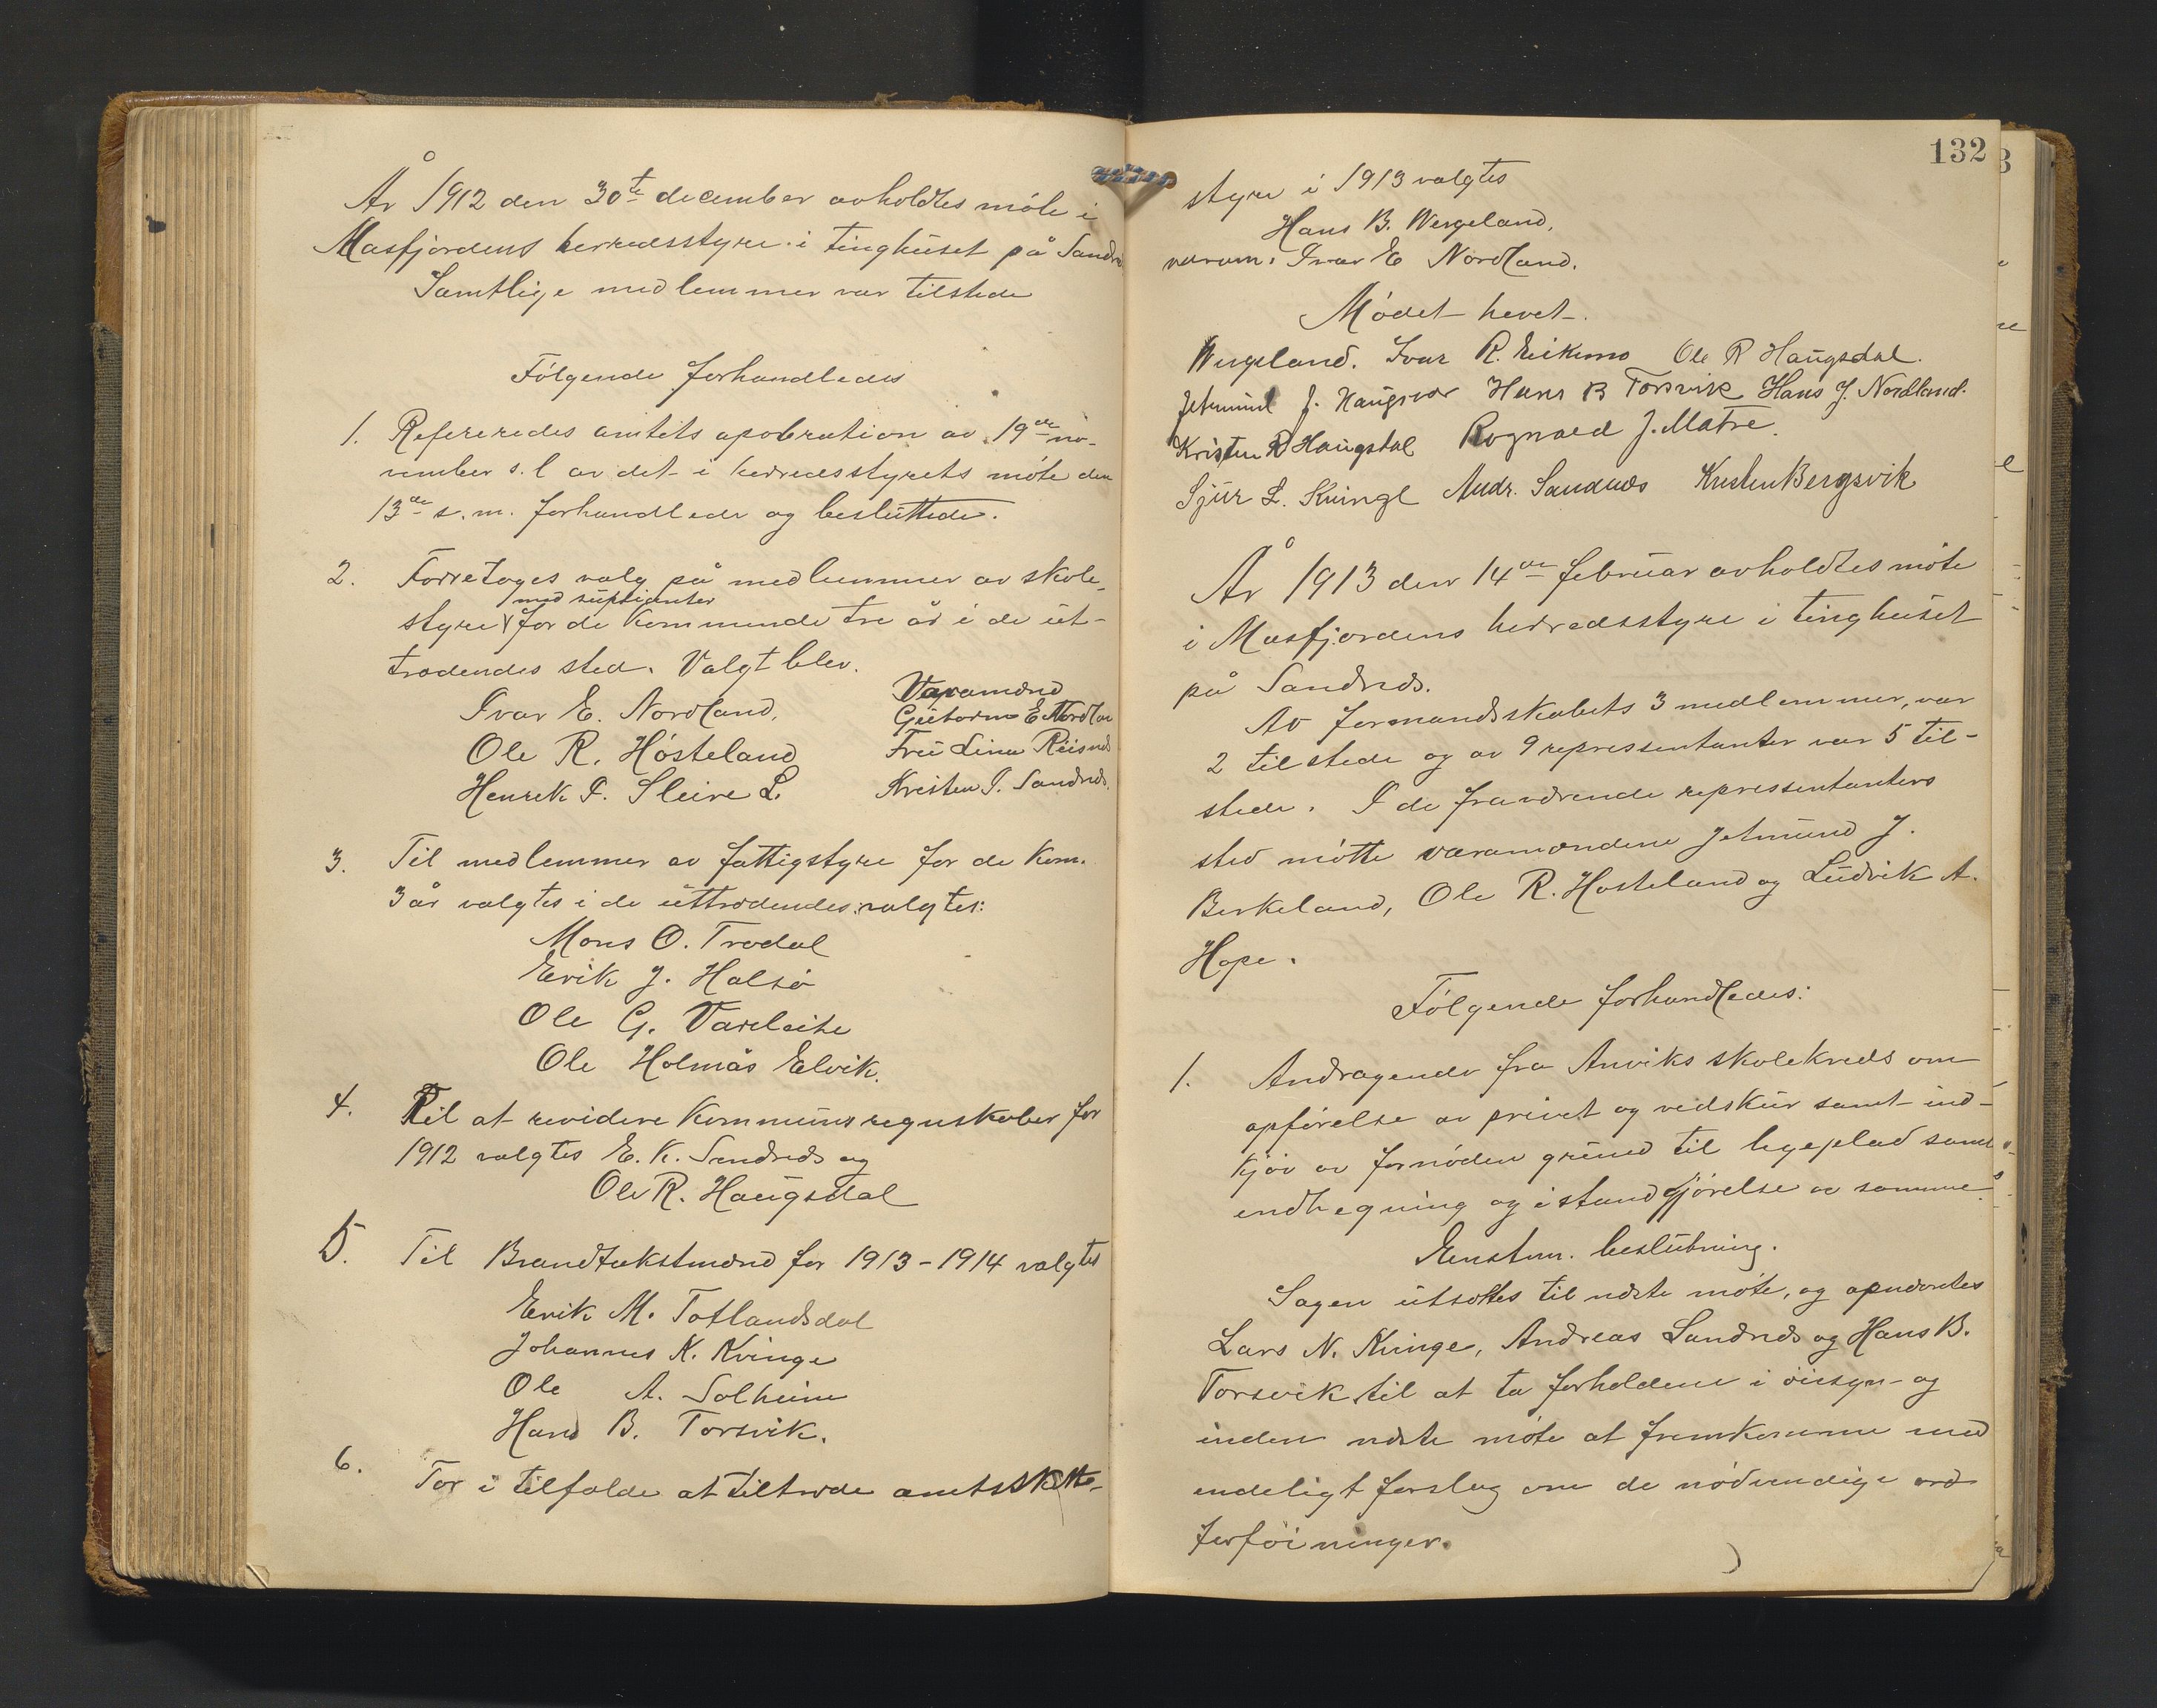 År 1912 den 30te december avholdtes möte i
Masfjordens herredsstyre i tinghuset på Sandnæs
Samtlige medlemmer var tilstede
Fölgende forhandledes
1. Refereredes amtets apobration av 19de no-
vember s. l av det i herredsstyrets möte den
13de s. m. forhandlede og besluttede.
2. Forretoges valg på medlemmer av skole-
med supleanter
styre for de kommende tre år i de ut-
trædendes sted. Valgt blev.
Ivar E. Nordland,
Ole R. Hösteland
Henrik I. Sleire L.
Varamænd
Guttorm E Nordland
Fru Lina Risnes
Kristen I. Sandnæs.
3. Til medlemmer av fattigstyre for de kom.
3 år valgtes i de uttrædendes valgtes:
Mons O. Trædal
Erik J. Halsö
Ole G. Vareleite
Ole Holmås Elvik.
4. Til at revidere kommuneregnskaber for
1912 valgtes E. K. Sandnæs og
Ole R. Haugsdal
5. Til Brandtakstmænd for 1913-1914 valgtes
Erik M. Totlandsdal
Johannes K. Kvinge
Ole A. Solheim
Hans B. Torsvik.
6. For i tilfælde at tiltræde amtsskatte-
132
styre i 1913 valgtes
Hans B. Wergeland,
varam. Ivar E Nordland.
Mödet hevet.
Wergeland. Ivar R. Eikemo Ole R Haugsdal.
Jetmund J. Haugsvær Hans B Torsvik Hans J. Nordland.
Kristen R Haugsdal Rognald J. Matre.
Sjur L. Kvinge Andr. Sandnæs Kristen Bergsvik
År 1913 den 14de februar avholdtes möte
i Masfjordens herredsstyre i tinghuset
på Sandnæs.
Av formandskabets 3 medlemmer, var
2 tilstede og av 9 repressentanter var 5 til-
stede. I de fraværende repressentanters
sted mötte varamændene Jetmund J.
Birkeland, Ole R. Hosteland og Ludvik A.
Hope.
Fölgende forhandledes:
1. Andragende fra Anviks skolekreds om
opförelse av privet og vedskur samt ind-
kjöv av fornöden grund til legeplads samt
indhegning og istandgjörelse av samme.
Enstem. beslutning.
Sagen utsættes til næste möte, og opnævntes
Lars N. Kvinge, Andreas Sandnæs og Hans B.
Torsvik til at ta forholdene i öiesyn og
inden næste möte at fremkomme med
endeligt forslag om de nödvendige
forföininger.